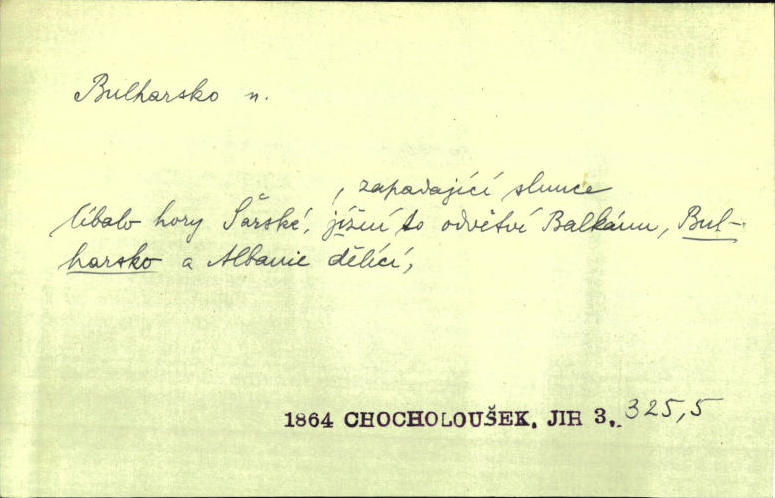 Bulharsko n.
, zapadající slunce
líbalo hory Šarské, jižní to odvětví Balkánu, Bul-
harsko a Albanie dělící,
1864 CHOCHOLOUŠEK, JIH 3, 325,5